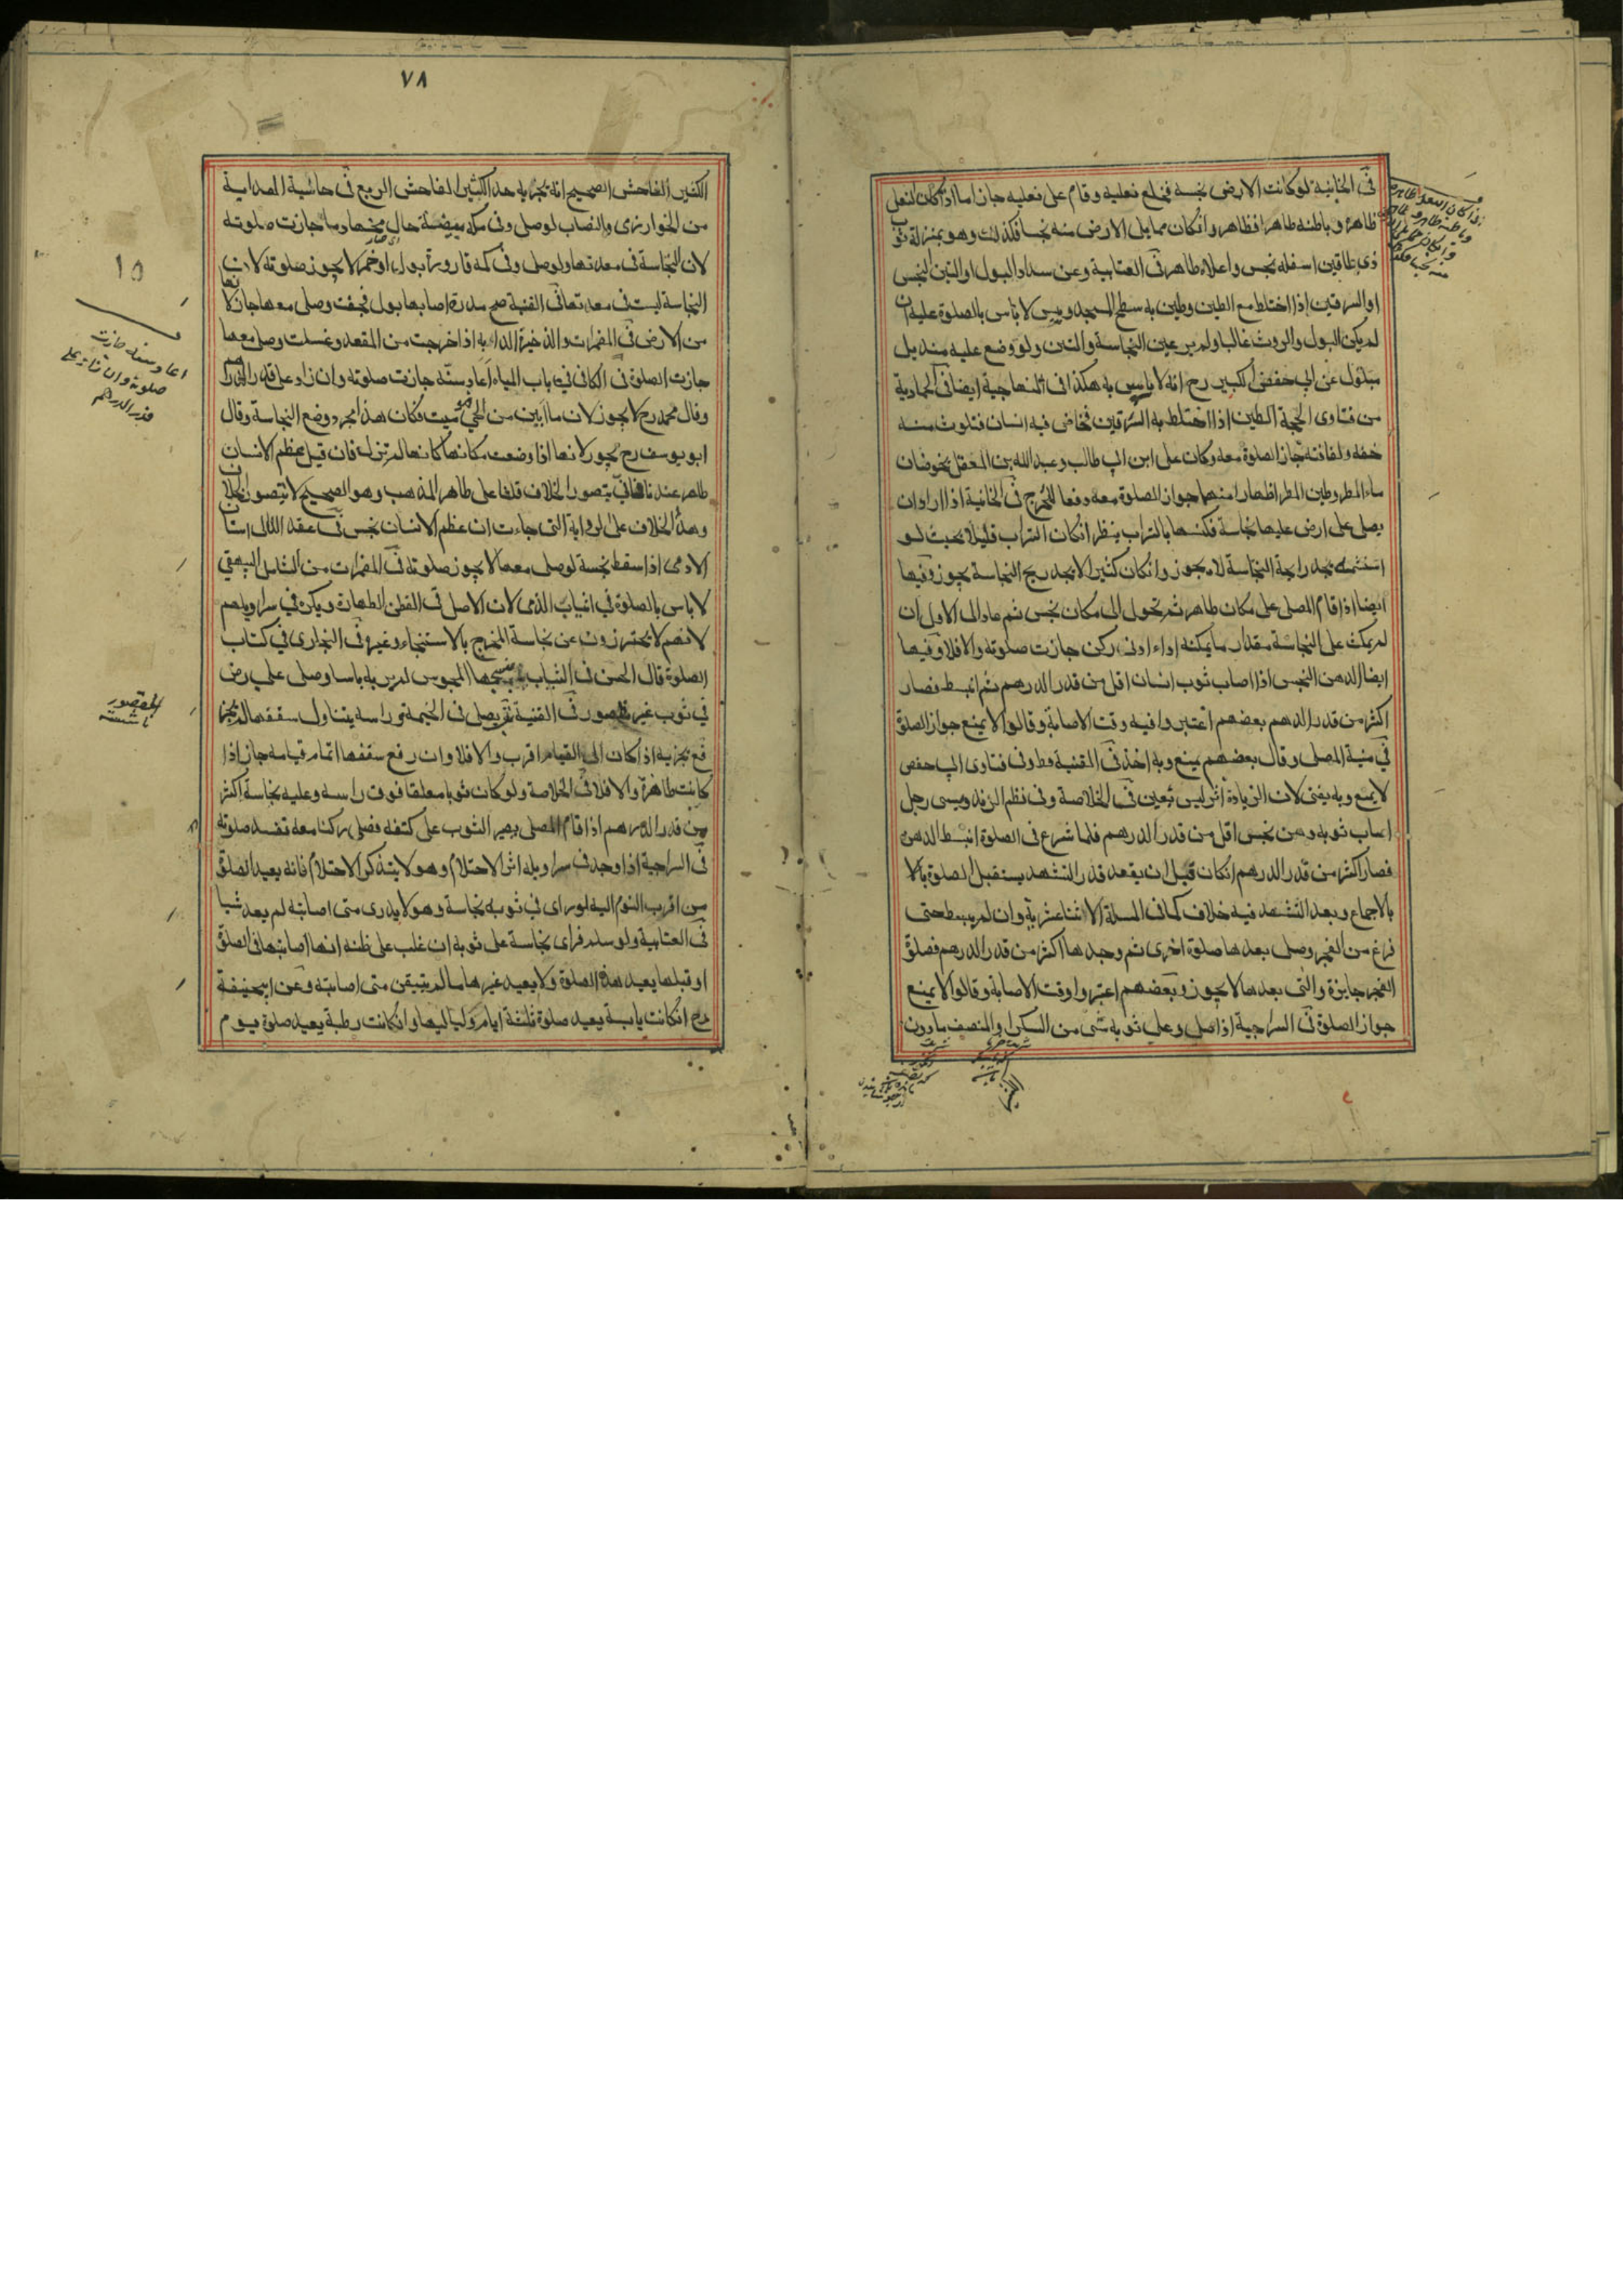 في الخانية لو كانت الارض نجسه فخلع نعليه وقام على نعليه جاز اما اذا كان النعل
ظاهره وباطنه طاهرا فظاهر وانكان مما يلي الارض منه نجسا فكذلك وهو بمنزلة ثوب
ذي طاقين اسفله نجس واعلاه طاهر في العتابية وعن سداد البول او التبن النجس
او السرقين اذا اختلط مع الطين وطين به سطح المسجد ويبس لا باس بالصلوة عليه ان
لم يكن البول والروث غالبا ولم ير عين النجاسة والتبن ولو وضع عليه منديل
مبلول عن ابي حفص الكبير رح انه لا باس به هكذا في ايضا في الحمادية
من فتاوى الحجة الطين اذا اختلط به السرقين فخاض فيه انسان فتلوث منه
خفه ولفافته جاز الصلوة معه وكان علي ابن ابي طالب وعبد الله بن المعقل يخوضان
ماء المطر وطين المطر اظهارا منهما جواز الصلوة معه دفعا للحرج في الخانية اذا اراد ان
يصلى على ارض عليها نجاسة فكنسها بالتراب ينظر انكان التراب قليلا بحيث لو
استشمه يجد رايحة النجاسة لا يجوز وانكان كثيرا لا يجد ريح النجاسة يجوز وفيها
ايضا اذا قام المصلى على مكان طاهر ثم تحول الى مكان نجس ثم عاد الى الاول ان
لم يمكث على النجاسة مقدار ما يمكنه اداء ادنى ركن جازت صلوته والا فلا وفيها
ايضا الدهن النجس اذا اصاب ثوب انسان اقل من قدر الدرهم ثم انبسط فصار
اكثر من قدر الدرهم بعضهم اعتبروا فيه وقت الاصابة وقالوا لا يمنع جواز الصلوة
في منية المصلى وقال بعضهم يمنع وبه اخذ في القنية وفى فتاوى ابي حفص
لا يمنع وبه يفتى لان الزيادة اثر ليس بعين في الخلاصة وفى نظم الزندويسى رجل
اصاب ثوبه دهن نجس اقل من قدر الدرهم فلما شرع فى الصلوة انبسط الدهن
فصار اكثر من قدر الدرهم انكان قبل ان يقعد قدر التشهد يستقبل الصلوة
بالاجماع وبعد التشهد فيه خلاف كما فى المسلة الاثنا عشرية وان لم ينبسط حتى
فرغ من الفجر وصلى بعدها صلوة اخرى ثم وجدها اكثر من قدر الدرهم فصلوة
الفجر جايزة والتى بعدها لا يجوز وبعضهم اعتبروا وقت الاصابة وقالوا لا يمنع
جواز الصلوة في السراجية اذا صلى وعلى ثوبه شى من السكر او المنصف مادون
٧٨
الكثير الفاحش الصحيح انه يجزيه حد الكثير الفاحش الربع في حاشية الهداية
من الخوارزمى والنصاب لو صلى وفى كمه بيضة حال مخها دما جازت صلوته
لان النجاسة فى معدنها ولو صلى وفى كمه قارورة بول او خمر لا يجوز صلوته لان
النجاسة ليست في معدنها في القنية اصابها بول فجفت وصلى معها جاز كما
من الارض في المضمرات والذخيرة الدابه اذا خرجت من المقعد وغسلت وصلى معها
جازت الصلوة فى الكافى فى باب المياه اعاد سنه جازت صلوته وان زاد على قدر الدرهم
وقال محمد رح لا يجوز لان ما ابين من الحي ميت فكان هذا مجرد وضع النجاسة وقال
ابو يوسف رح يجوز لانها اذا وضعت مكانها كانها لم تزل فان قيل عظم الانسان
طاهر عندنا فانى يتصور الخلاف قلنا على ظاهر المذهب وهو الصحيح لا يتصور الخلاف
وهذا الخلاف على الرواية التى جاءت ان عظم الانسان نجس في عقد اللآلى اسنان
الادمى اذا سقط نجسة لو صلى معها لا يجوز صلوته في المضمرات من الشامل البيهقي
لا باس بالصلوة في ثياب الذمى لان الاصل في القطن الطهارة ويكره في سراويلهم
لانهم لا يحترزون عن نجاسة المخرج بالاستنجاء وغيره في البخارى في كتاب
الصلوة قال الحسن فى الثياب ينسجها المجوس لم ير به باسا وصلى علي رض
في ثوب غير مقصور في القنية يصلى فى الخيمة وراسه يتناول سقفها
يجزيه اذا كان الى القيام اقرب والا فلا وان رفع سقفها اتمام قيامه جاز اذا
كانت طاهرة والا فلا في الخلاصة ولو كان ثوبا معلقا فوق راسه وعليه نجاسة اكثر
من قدر الدرهم اذا قام المصلى يصير الثوب على كتفه فصلى ركنا معه تفسد صلوته
في السراجية اذا وجد فى سراويله اثر الاحتلام وهو لا يتذكر الاحتلام فانه يعيد الصلوة
من اقرب النوم اليه لو راى في ثوبه نجاسة وهو لا يدرى متى اصابته لم يعد شيا
في العتابية ولو سلم فراى نجاسة على ثوبه ان غلب على ظنه انها اصابتها في الصلوة
او قبلها يعيد هذه الصلوة ولا يعيد غيرها ما لم يتيقن متى اصابته وعن ابيحنيفة
رح انكانت يابسة يعيد صلوة ثلثة ايام ولياليها وانكانت رطبة يعيد صلوة يوم
١٥
اعاد سنه جازت
صلوته وان زاد على
قدر الدرهم
المقصور